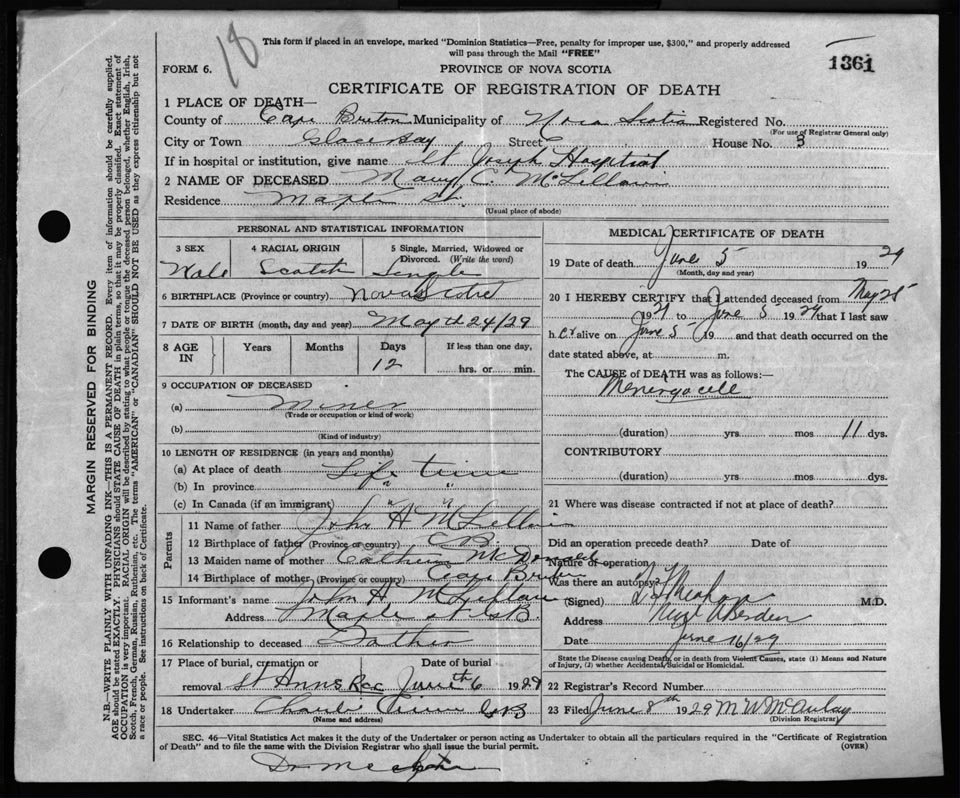 18
This form if placed in an envelope, marked "Dominion Statistics—Free, penalty for improper use, $300," and properly addressed
will pass through the Mail "FREE"
1361
FORM 6.
PROVINCE OF NOVA SCOTIA
CERTIFICATE OF REGISTRATION OF DEATH
1 PLACE OF DEATH—
County of Cape Breton Municipality of Nova Scotia Registered No.
(For use of Registrar General only)
City or Town Glace Bay Street House No. 3
If in hospital or institution, give name St Joseph Hospital
2 NAME OF DECEASED Mary C. McLellan
Residence Maple St.
(Usual place of abode)
PERSONAL AND STATISTICAL INFORMATION
3 SEX 4 RACIAL ORIGIN 5 Single, Married, Widowed or Divorced. (Write the word)
Scotch Single
6 BIRTHPLACE (Province or country) Nova
7 DATE OF BIRTH (month, day and year) May th 24/29
8 AGE IN Years Months Days If less than one day,
12 hrs. or min.
9 OCCUPATION OF DECEASED
(a) Miner
(Trade or occupation or kind of work)
(b)
(Kind of industry)
10 LENGTH OF RESIDENCE (in years and months)
(a) At place of death Life time
(b) In province " "
(c) In Canada (if an immigrant) " "
Parents
11 Name of father John H McLellan
12 Birthplace of father (Province or country) CB
13 Maiden name of mother Catherine McDonald
14 Birthplace of mother (Province or country) Cape Breton
15 Informant's name John H McLellan
Address Maple St CB
16 Relationship to deceased Father
17 Place of burial, cremation or removal St Anns Date of burial June th 6 1929
18 Undertaker Charlie
(Name and address)
MEDICAL CERTIFICATE OF DEATH
19 Date of death June 5 1929
(Month, day and year)
20 I HEREBY CERTIFY that I attended deceased from May 25
1929 to June 5 1929 that I last saw
h er alive on June 5 19 and that death occurred on the
date stated above, at m.
The CAUSE of DEATH was as follows:—
Meningocele
(duration) yrs mos 11 dys.
CONTRIBUTORY
(duration) yrs. mos. dys.
21 Where was disease contracted if not at place of death?
Did an operation precede death? Date of
Nature of operation
Was there an autopsy?
(Signed) M.D.
Address New Aberdeen
Date June 16/29
State the Disease causing Death, or in death from Violent Causes, state (1) Means and Nature
of Injury, (2) whether Accidental, Suicidal or Homicidal.
22 Registrar's Record Number
23 Filed June 8th 1929 M W McAulay
(Division Registrar)
SEC. 46—Vital Statistics Act makes it the duty of the Undertaker or person acting as Undertaker to obtain all the particulars required in the "Certificate of Registration
of Death" and to file the same with the Division Registrar who shall issue the burial permit.
(OVER)
Dr
MARGIN RESERVED FOR BINDING
N.B.—WRITE PLAINLY WITH UNFADING INK—THIS IS A PERMANENT RECORD. Every item of information should be carefully supplied.
AGE should be stated EXACTLY. PHYSICIANS should STATE CAUSE OF DEATH in plain terms, so that it may be properly classified. Exact statement of
OCCUPATION is very important. RACIAL ORIGIN will be described by stating to what people or tongue the deceased person belonged, whether English, Irish,
Scotch, French, German, Russian, Ruthenian, etc. The terms "AMERICAN" or "CANADIAN" SHOULD NOT BE USED as they express citizenship but not
a race or people. See instructions on back of Certificate.